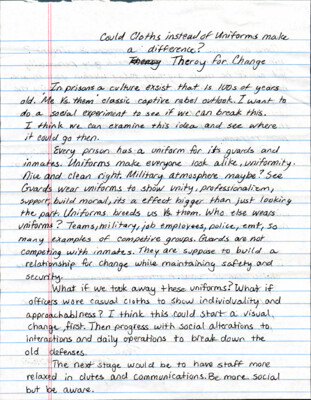 Could Cloths instead of Uniforms make
a difference?
Theroy for Change
In prisons a culture exsist that is 100s of years
old. Me Vs. them classic captive rebel outlook. I want to
do a social experiment to see if we can break this.
I think we can examine this idea and see where
it could go then.
Every prison has a uniform for its guards and
inmates. Uniforms make everyone look alike, uniformity.
Nive and clean right. Military atmosphere maybe? See
Guards wear uniforms to show unity, professionalism,
support, build moral, its a effect bigger than just looking
the part. Uniforms breeds us Vs them. Who else wears
uniforms? Teams, military, job employees, police, emt, so
many examples of competive groups. Guards are not
competing with inmates. They are suppose to build a
relationship for change while maintaining safety and
security.
What if we took away these uniforms? What if
officers wore casual cloths to show individuality and
approachableness? I think this could start a visual
change first. Then progress with social alterations to
interactions and daily operations to break down the
old defenses.
The next stage would be to have staff more
relaxed in dutes and communications. Be more social
but be aware.